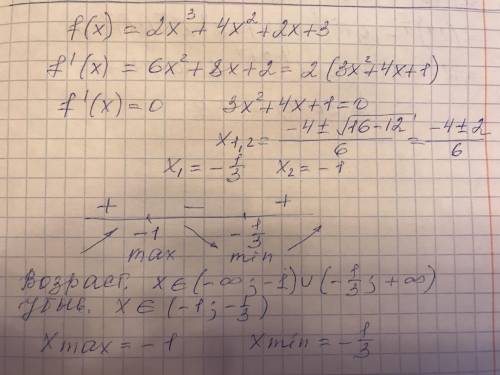 f(x) = 2x³ + 4x² + 2x + 3
f'(x) = 6x² + 8x + 2 = 2(3x² + 4x + 1)
f'(x) = 0 3x² + 4x + 1 = 0
x₁,₂ = (-4 ± √(16-12))/6 = (-4 ± 2)/6
x₁ = -1/3 x₂ = -1
+ − +
-1 -1/3
max min
Возраст. x ∈ (-∞; -1) ∪ (-1/3; +∞)
убыв. x ∈ (-1; -1/3)
Xmax = -1 Xmin = -1/3